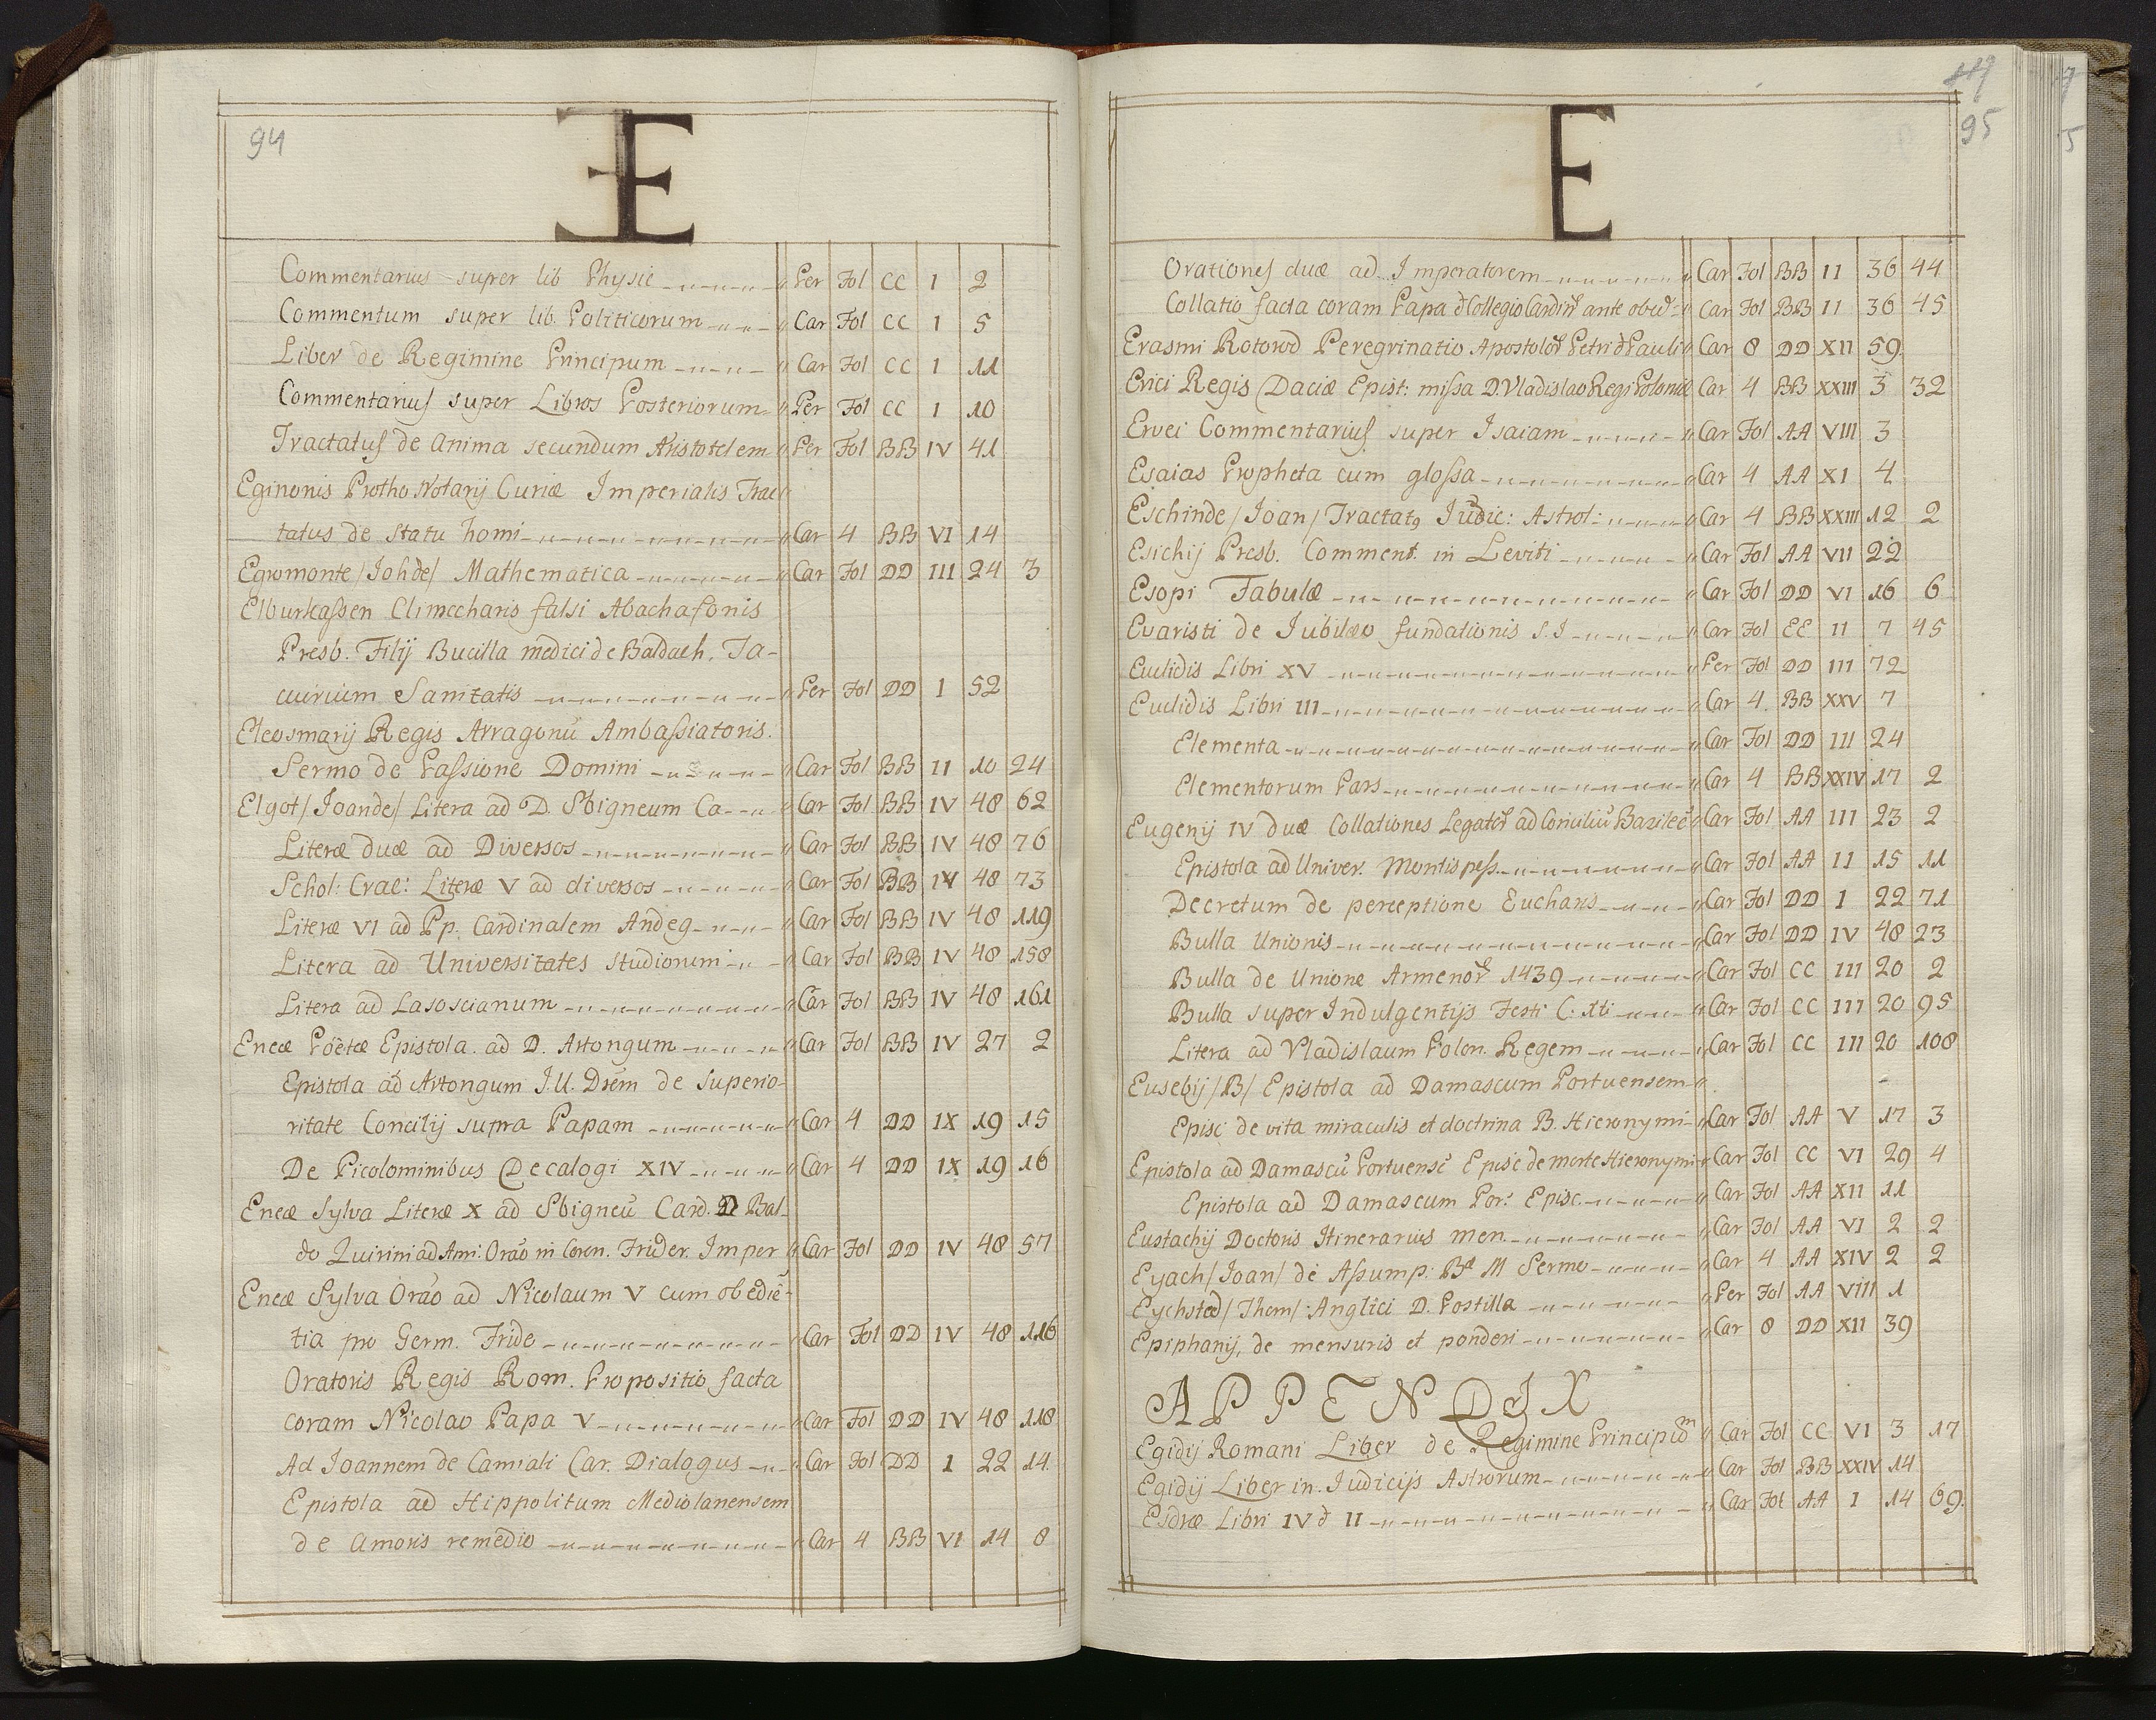 94
E
Commentarius super lib Physic Per Fol CC I 2
Commentum super lib. Politicorum Car Fol CC I 5
Liber de Regimine Principum Car Fol CC I 11
Commentarius super Libros Posteriorum Per Fol CC I 10
Tractatus de anima secundum Aristotelem Per Fol BB IV 41
Eginonis Protho Notarij Curiæ Imperialis Trac
tatus de statu homi Car 4 BB VI 14
Egromonte /Joh de/ Mathematica Car Fol DD III 24 3
Elburkassen Climccharis falsi Abachasonis
Presb. Filij Bucilla medici de Baldach, Ta-
cuinum Sanitatis Per Fol DD I 52
Eleosmarij Regis Arragonũ Ambassiatoris.
Sermo de Passione Domini Car Fol BB II 10 24
Elgot /Joan de/ Litera ad D. Sbigneum Ca Car Fol BB IV 48 62
Literæ duæ ad Diversos Car Fol BB IV 48 76
Schol: Crac: Literæ V ad diversos Car Fol BB IV 48 73
Literæ VI ad Pp. Cardinalem Andeg Car Fol BB IV 48 119
Litera ad Universitates studiorum Car Fol BB IV 48 158
Litera ad Lasoscianum Car Fol BB IV 48 161
Eneæ Pöetæ Epistola. ad D. Artongum Car Fol BB IV 27 2
Epistola ad Artongum J.U. Drem de superio-
ritate Concilij supra Papam Car 4 DD IX 19 15
De Picolominibus Decalogi XIV Car 4 DD IX 19 16
Eneæ Sylva Literæ X ad Sbigneũ Card. D Bal-
do Quirini ad Ami: Orão in Coron. Frider. Imper Car Fol DD IV 48 57
Eneæ Sylva Orão ad Nicolaum V cum obediẽ-
tia pro Germ. Fride Car Fol DD IV 48 116
Oratoris Regis Rom. Propositio facta
coram Nicolao Papa V Car Fol DD IV 48 118
Ad Joannem de Camiali Car. Dialogus Car Fol DD I 22 14
Epistola ad Hippolitum Mediolanensem
de Amoris remedio Car 4 BB VI 14 8
119
95
E
Orationes duæ ad Imperatorem Car Fol BB II 36 44
Collatio facta coram Papa & Collegio Cardin ante obed Car Fol BB II 36 45
Erasmi Roterod Peregrinatio Apostolor Petri & Pauli Car 8 DD XII 59
Erici Regis Daciæ Epist: missa D. Vladislao Regi Poloniæ Car 4 BB XXIII 3 32
Ervei Commentarius super Isaiam Car Fol AA VIII 3
Esaias Propheta cum glossa Car 4 AA XI 4
Eschinde /Joan/ Tractat9 Judic: Astrol: Car 4 BB XXIII 12 2
Esichij Presb. Comment. in Leviti Car Fol AA VII 22
Esopi Fabulæ Car Fol DD VI 16 6
Evaristi de Jubilæo fundationis S.J Car Fol EE II 7 45
Euclidis Libri XV Per Fol DD III 72
Euclidis Libri III Car 4. BB XXV 7
Elementa Car Fol DD III 24
Elementorum Pars Car 4 BB XXIV 17 2
Eugenij IV duæ Collationes Legator ad Conciliũ Basileẽ Car Fol AA III 23 2
Epistola ad Univer. Montispess. Car Fol AA II 15 11
Decretum de perceptione Eucharis Car Fol DD I 22 71
Bulla Unionis Car Fol DD IV 48 23
Bulla de Unione Armenor 1439 Car Fol CC III 20 2
Bulla super Indulgentijs Festi C: Xti Car Fol CC III 20 95
Litera ad Vladislaum Polon. Regem Car Fol CC III 20 108
Eusebij /B/ Epistola ad Damascum Portuensem
Episc de vita miraculis et doctrina B. Hieronymi Car Fol AA V 17 3
Epistola ad Damascũ Portuensẽ Episc de morte Hieronymi Car Fol CC VI 29 4
Epistola ad Damascum Por: Episc. Car Fol AA XII 11
Eustachij Doctoris Itinerarius men. Car Fol AA VI 2 2
Eyach /Joan/ de Assump: Bæ M Sermo Car 4 AA XIV 2 2
Eychsted /Thom/ Anglici D. Postilla Per Fol AA VIII 1
Epiphanij, de mensuris et ponderi Car 8 DD XII 39
APPENDIX
Egidij Romani Liber de Regimine Principum Car Fol CC VI 3 17
Egidij Liber in Judicijs Astrorum Car Fol BB XXIV 14
Esdræ Libri IV & II Car Fol AA I 14 69.